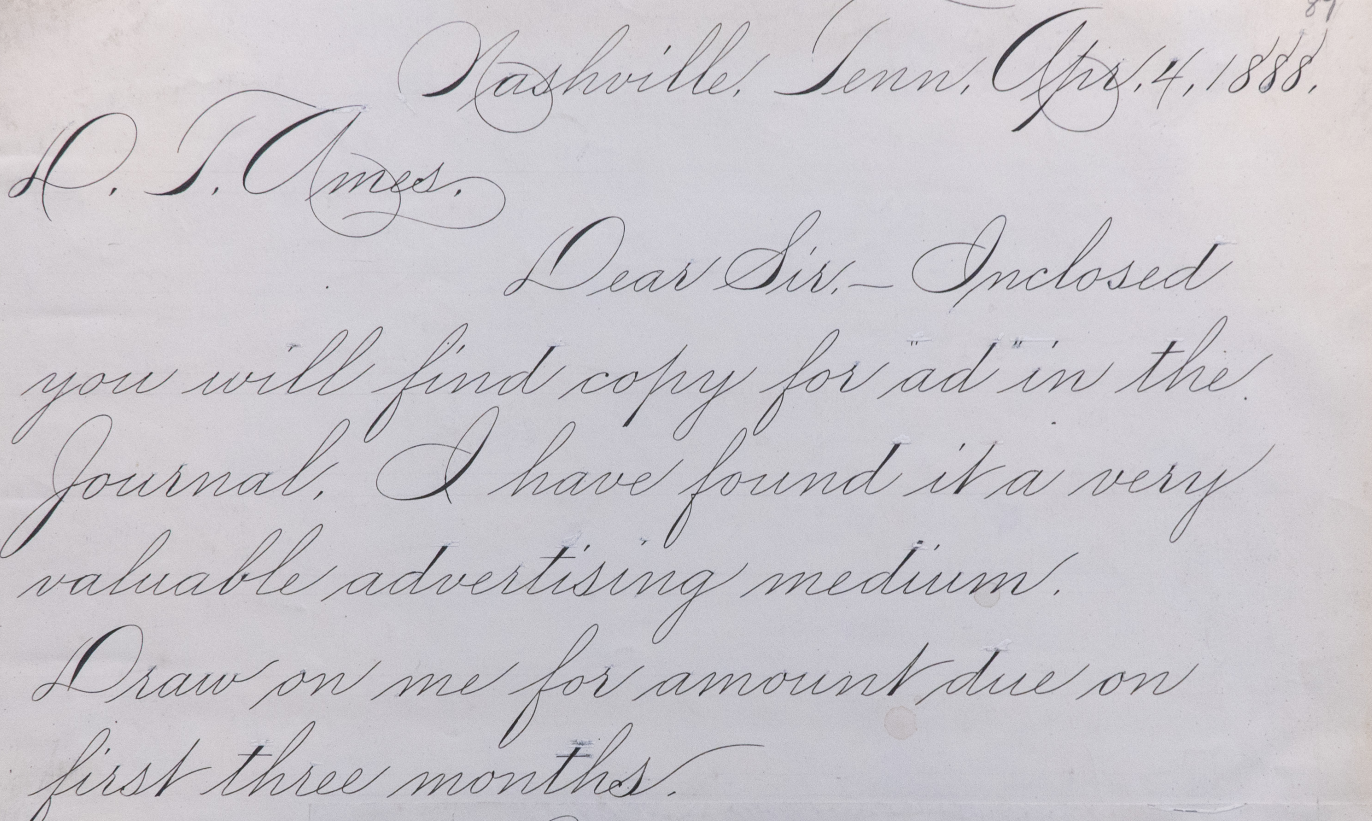 Nashville, Tenn, Apr. 4, 1888.
D. T. Ames.
Dear Sir,— Inclosed
you will find copy for "ad" in the
Journal. I have found it a very
valuable advertising medium.
Draw on me for amount due on
first three months.